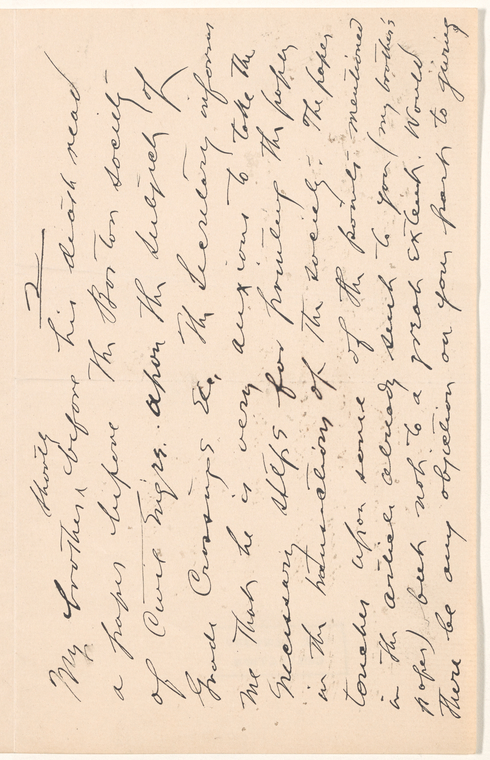 2
My brother shortly before his death read
a paper before the Boston society
of Civil Engrs. upon the subject of
Grade Crossings &c. The Secretary informs
me that he is very anxious to take the
necessary steps for printing the paper
in the transactions of the society. The paper
touches upon some of the points mentioned
in the article already sent to you (my brother's
paper) but not to a great extent. Would
there be any objection on your part to giving